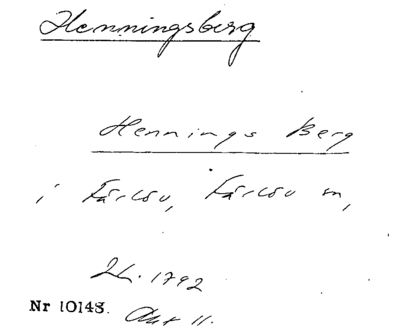 Henningsberg
Hennings Berg
i Färlöv, Färlöv sn,
Lt. 1792
Nr 10148. Akt 11.